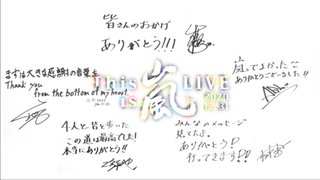 皆さんのおかげ
ありがとう!!!
まずは大きな感謝の言葉を
Thank you
from the bottom of my heart.
嵐ってよかった
ありがとうございました!!
This is 嵐 LIVE
2020
12.31
4人と、皆と歩った
この道は最高でした!
本当にありがとう!!
みんなのメッセージ
見てたよ。
ありがとう!!
行ってきます!!